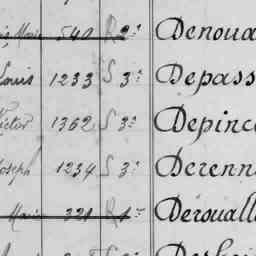 Marie 540 R 2e Denoua
Louis 1233 S 3e Depass
Victor 1362 S 3e Depince
Joseph 1234 S 3e Derenn
Marie 321 R 1er Derouall